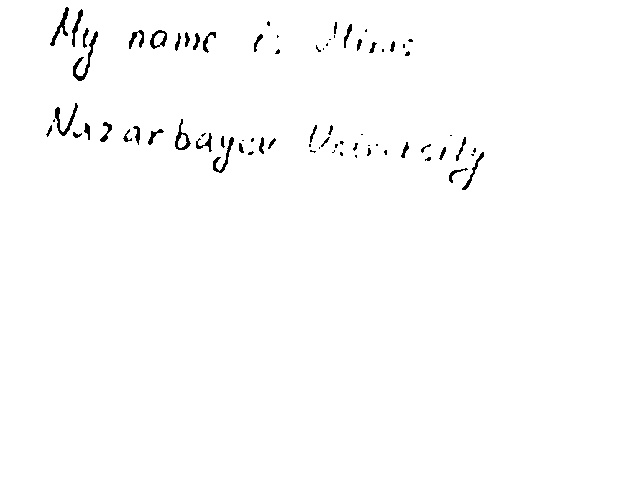 My name is
Nazarbayev University